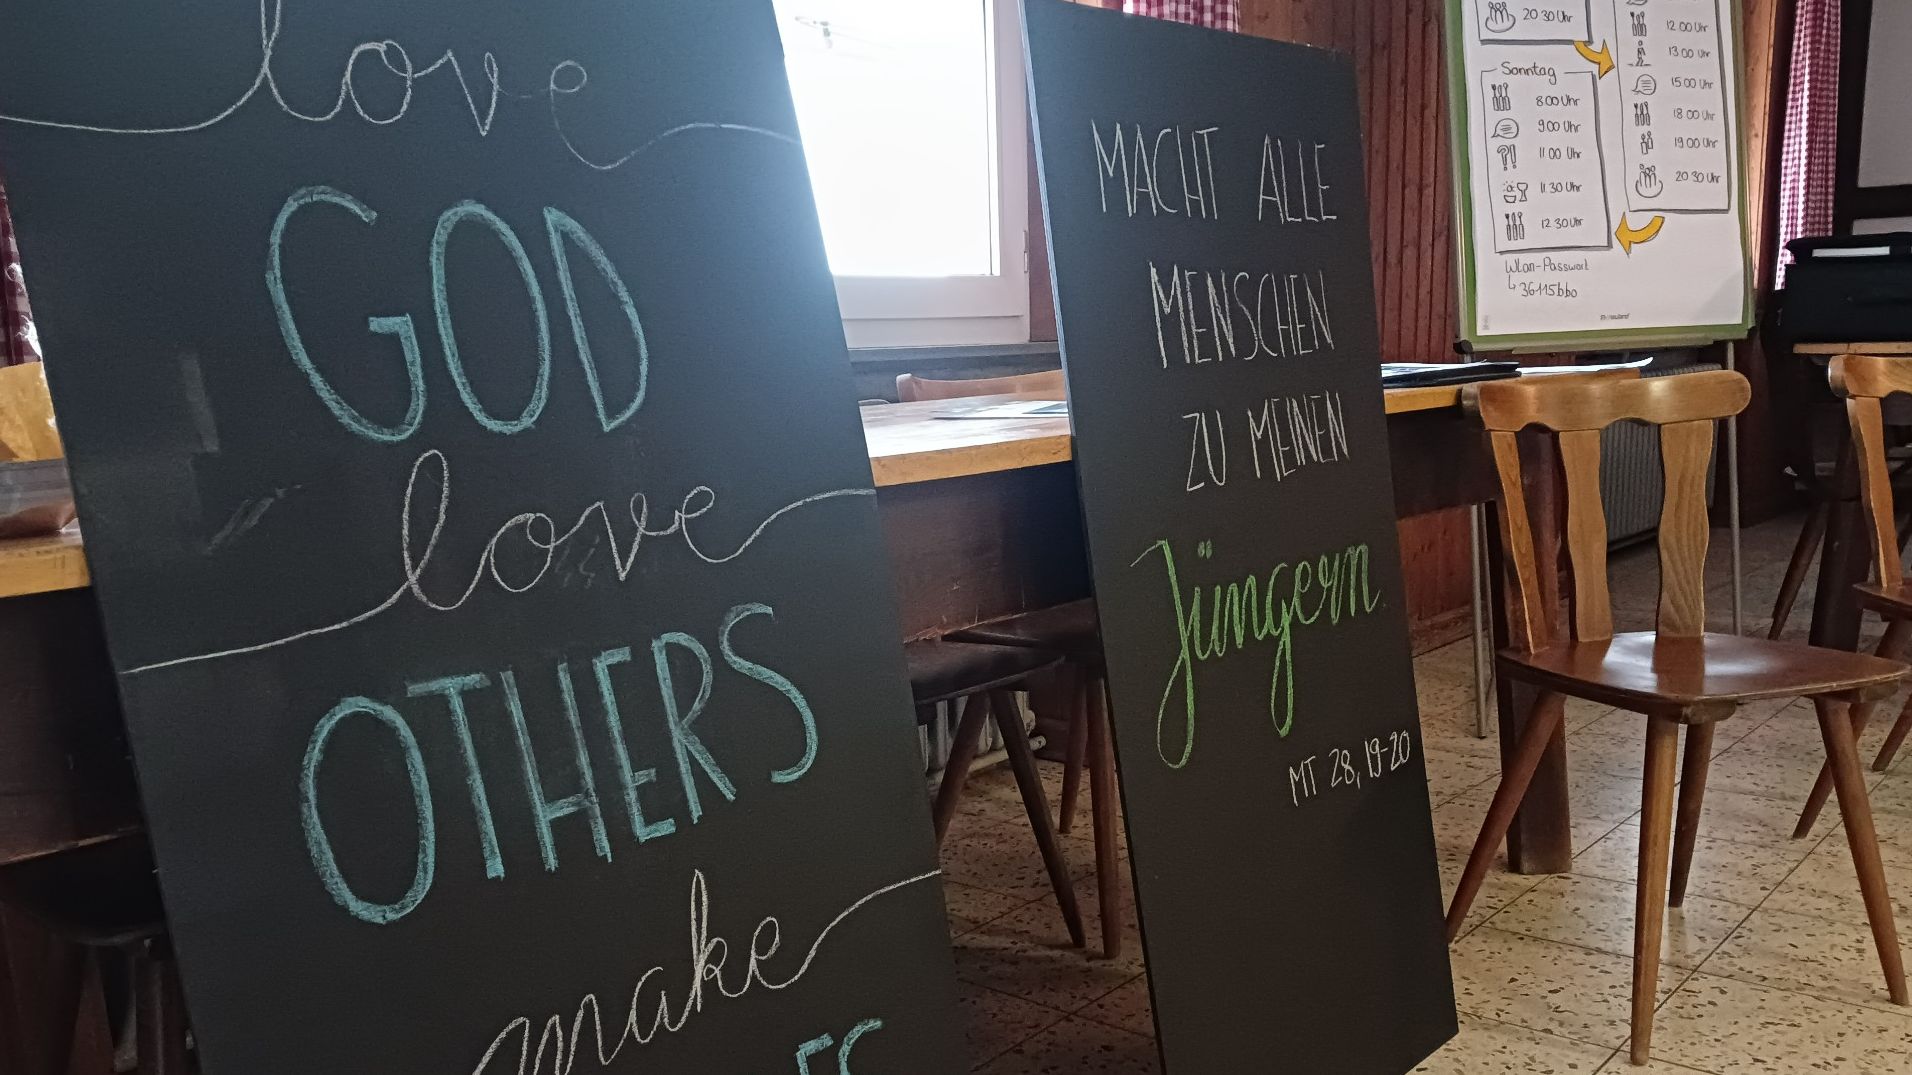 love
GOD
love
OTHERS
make
MACHT ALLE
MENSCHEN
ZU MEINEN
Jüngern.
MT 28,19-20
20 30 Uhr
Sonntag
8 00 Uhr
9 00 Uhr
?!
11 00 Uhr
11 30 Uhr
12 30 Uhr
12 00 Uhr
13 00 Uhr
15 00 Uhr
18 00 Uhr
19 00 Uhr
20 30 Uhr
Wlan-Passwort